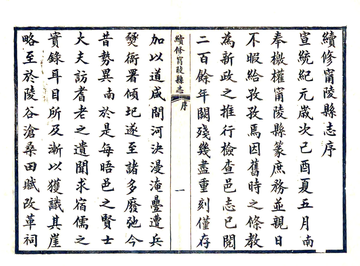 續修甯陵縣志序
宣統紀元歲次己酉夏五月南
奉檄權甯陵縣篆庶務並親日
不暇給孜孜焉因舊時之條教
為新政之推行檢查邑志已閱
二百餘年闕殘幾盡重刻僅存
續修甯陵縣志
序
一
加以道咸間河決漫淹疊遭兵
燹衙署傾圮遂至諸多廢弛今
昔勢異南於是每晤邑之賢士
大夫訪耆老之遺聞求宿儒之
實錄耳目所及漸以獲識其崖
略至於陵谷滄桑田賦改革祠